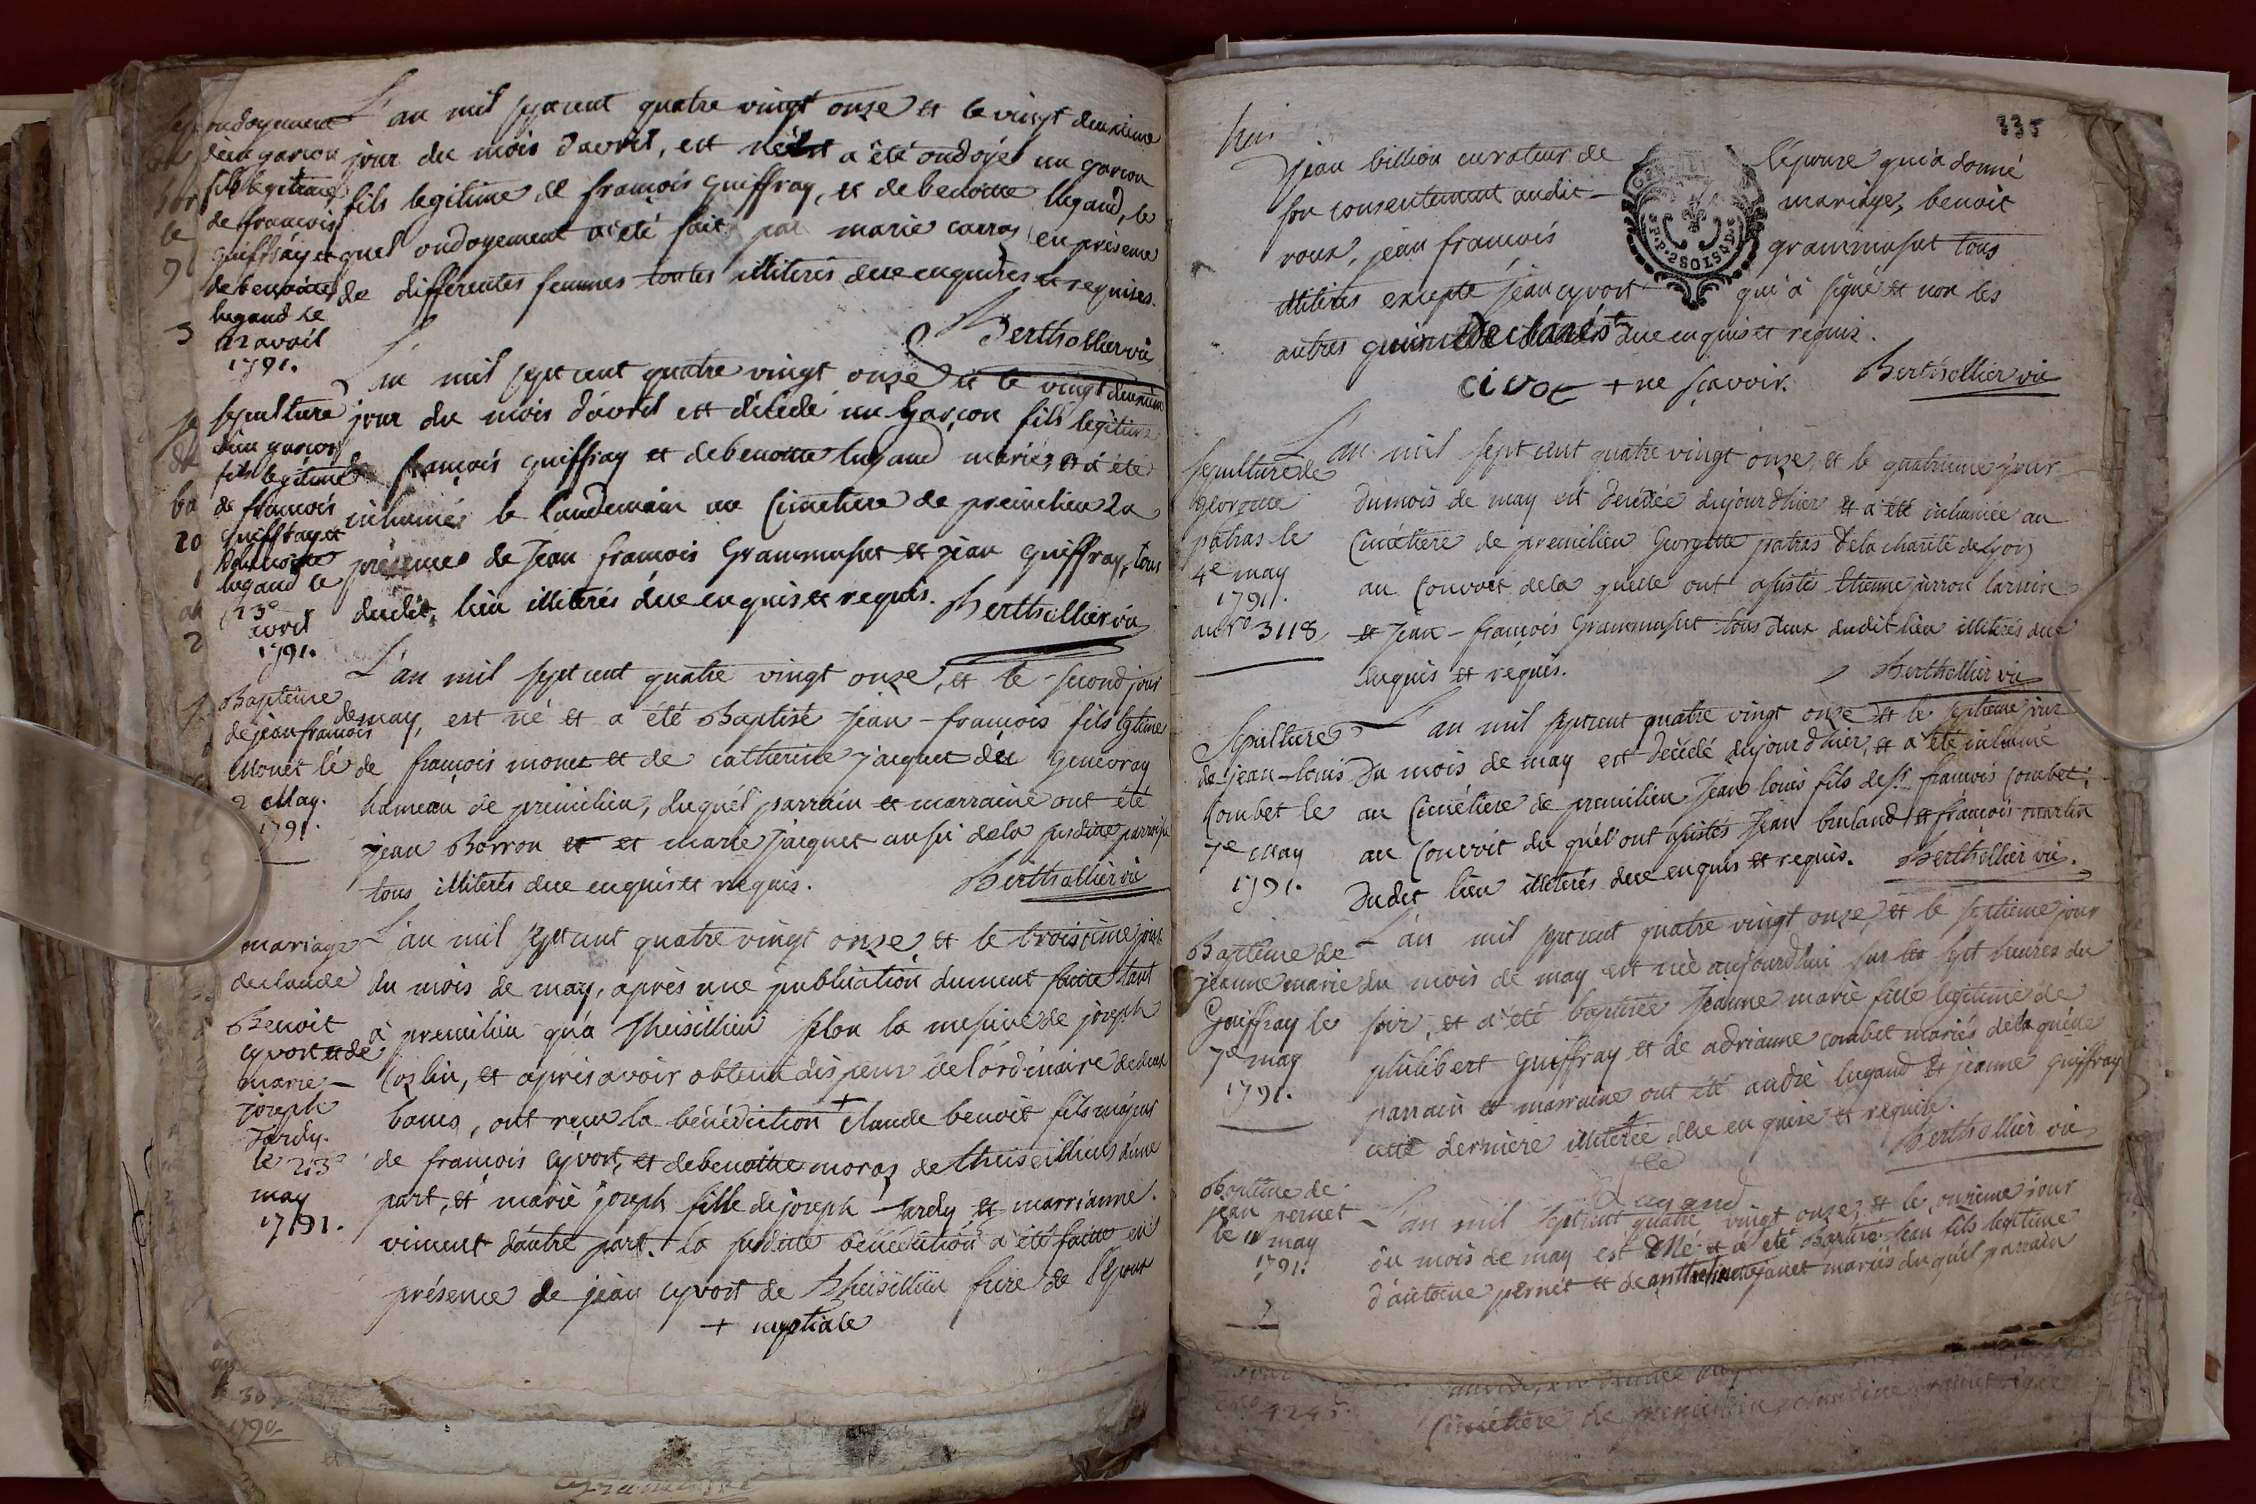 ondoyement
d'un garcon
fils legitime
de francois
guiffray et
de benoite
lugand le
22 avril
1791.
L'an mil sept cent quatre vingt onze et le vingt deuxieme
jour du mois d'avril, est né et a été ondoyé un garcon
fils legitime de francois guiffray, et de benoitte lugand, le
quel ondoyement a été fait par marie carros en présence
de differentes femmes toutes illiterés due enquises et requises.
Berthollier vic
sepulture
d'un garcon
fils legitime
de francois
guiffray et
de benoite
lugand le
23e
avril
1791.
L'an mil sept cent quatre vingt onze et le vingt deuxieme
jour du mois d'avril est décédé un garcon fils legitime
de françois guiffray et de benoitte lugand mariés et a été
inhumé le landemain au Cimetiere de premilieu en
présence de Jean francois Grammusset et jean guiffray, tous
dudit lieu illiterés due enquis et requis. Berthollier vic
Baptême
de jean francois
Monet le
2 May.
1791.
L'an mil sept cent quatre vingt onze, et le second jour
de may, est né et a été Baptisé jean-francois fils legitime
de françois monet et de catherine jacquet du Genevray
hameau de premilieu, duquel parrain et marraine ont été
jean Borron et et marie jacquet aussi de la susdite parroisse
tous illiterés due enquis et requis. Berthollier vic
mariage
de claude
Benoit
cyvort et de
marie-
joseph
Tardy.
le 23e
may
1791.
L'an mil sept cent quatre vingt onze et le troisieme jour
du mois de may, après une publication dument faite tant
à premilieu qu'a Theisillieu selon la mesure de joseph
Coslin, et après avoir obtenu dispense de l'ordinaire de deux
bancs, ont reçu la bénédiction + Claude benoit fils majeur
de francois cyvort, et de benoitte moras de theiseillieu d'une
part, et marie joseph fille de joseph Tardy et marrianne
viment d'autre part. la susdite bénédiction a été faite en
présence de jean cyvort de Theisillieu frere de l'Epoux
+ nuptiale
335
jean billion curateur de l'épouse qui a donné
son consentement audit mariage, benoit
roux, jean francois grammusset tous
illiterés excepté jean cyvort qui a signé et non les
autres pour declarés due enquis et requis.
civot + ne sçavoir. Berthollier vic
2 SOLS 4 D
sepulture de
Georgette
patras le
4e may
1791.
au No 3118
L'an mil sept cent quatre vingt onze, et le quatrieme jour
du mois de may est decédée dujourdhier et a été inhumée au
Cimétiere de premilieu Georgette patras de la charité de lyon
au Convoit de la quelle ont assistés Etienne jurron larrin
et Jean-françois Grammusset tous deux dudit lieu illiterés due
enquis et requis. Berthollier vic
Sepulture
de jean-louis
Combet le
7e may
1791.
L'an mil sept cent quatre vingt onze et le septieme jour
du mois de may est décédé dujourdhier, et a été inhumé
au Cimétiere de premilieu Jean louis fils de sr. francois Combet,
au Convoit du quel ont assistés Jean bruland et francois martin
dudit lieu illiterés due enquis et requis. Berthollier vic.
Baptême de
jeanne marie
Guiffray le
7e may
1791.
L'an mil sept cent quatre vingt onze, et le septieme jour
du mois de may est née aujourdhui sur les sept heures du
soir, et a été baptisée Jeanne marie fille legitime de
philibert guiffray et de adrianne combet mariés de la quelle
parrain et marraine ont été andré lugand et jeanne guiffray
cette derniere illiterée due enquise et requise.
Berthollier vic
Lugand
Baptême de
jean pernet
le 11 may
1791.
L'an mil sept cent quatre vingt onze, et le onzieme jour
du mois de may est né et a été Baptisé jean fils legitime
d'antoine pernet et de anthelmette janet mariés du quel parrain
30
1790
4245
Cimétiere de premilieu